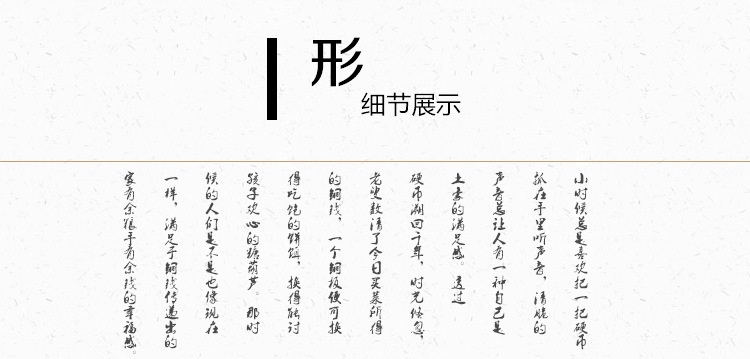 形
细节展示
小时候总是喜欢把一把硬币
抓在手里听声音，清脆的
声音总让人有一种自己是
土豪的满足感。透过
硬币溯回千年，时光倏忽，
老叟数清了今日买菜所得
的铜钱，一个铜板便可换
得吃饱的饼饵，换得能讨
孩子欢心的糖葫芦。那时
候的人们是不是也像现在
一样，满足于铜钱传递出的
家有余粮手有余钱的幸福感。